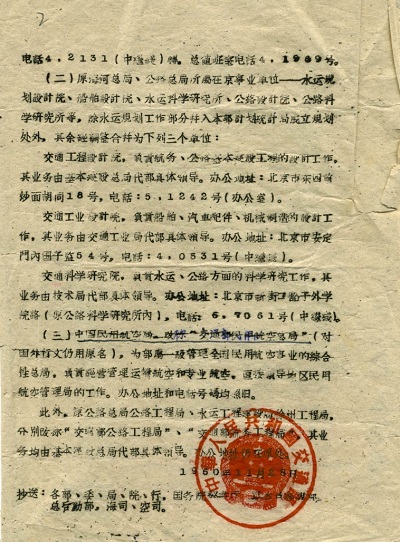 2
电话4.2131(中继线)转。总值班室电话4.1969号。
(二)原海河总局、公路总局所属在京事业单位——水运规
划设计院、船舶设计院、水运科学研究所、公路设计院、公路科
学研究所等,除水运规划工作部分并入本部计划统计局成立规划
处外,其余经调整合并为下列三个单位:
交通工程设计院,负责航务、公路基本建设工程的设计工作,
其业务由基本建设总局代部具体领导。办公地址:北京市东四
妙面胡同18号,电话:5.1242号(办公室)。
交通工业设计院,负责船舶、汽车配件、机械制造的设计工
作,其业务由交通工业局代部具体领导。办公地址:北京市安定
门内圈子54号,电话:4.0531号(中继线)。
交通科学研究院,负责水运、公路方面的科学研究工作,其
业务由技术局代部具体领导。办公地址:北京市新街口外学
院路(原公路科学研究所内),电话:6.7061号(中继线)
(三)中国民用航空局,改称“交通部民用航空总局”(对
国外行文仍用原名),为部属一级管理全国民用航空事业的综合
性总局,负责经营管理运输航空和专业航空,直接领导地区民用
航空管理局的工作。办公地址和电话号码均照旧。
此外,原公路总局公路工程局、水运工程 局
分别改称“交通部公路工程局”、“交通部 工程局”,其业
务均由基本建设总局代部具体领导。办公地址仍
1960年11月25日
抄送:各部、委、局、院、行,国务院
总后勤部,海司、空司。